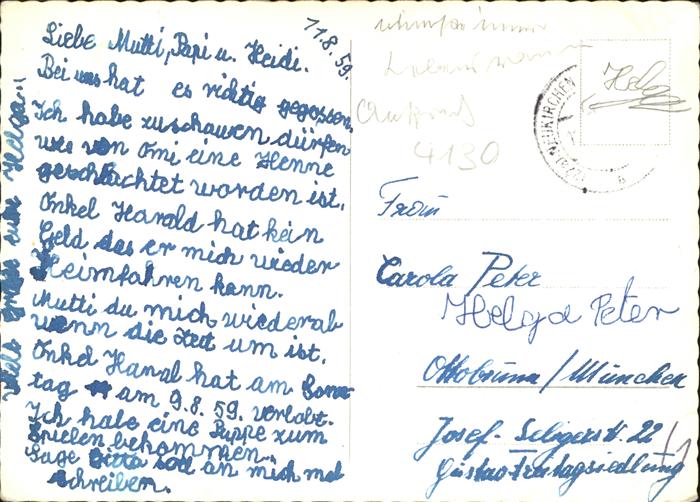 11.8.59.
Liebe Mutti, Papi u. Heidi.
Bei uns hat es richtig gegossen.
Ich habe zuschauen dürfen
wie von Omi eine Henne
geschlachtet worden ist.
Onkel Harald hat kein
Geld das er mich wieder
Heimfahren kann.
Mutti du mich wiederab
wenn die Zeit um ist.
Onkel Haral hat am Sonn
tag am 9.8.59. verlobt.
Ich habe eine Puppe zum
Spielen bekommen.
Sage an mich mal
schreiben.
Viele Grüße eure Helga.
4130
Helga
NEUKIRCHEN
Frau
Carola Peter
Helga Peter
Ottobrunn / München
22
Gustav-Freitagsiedlung